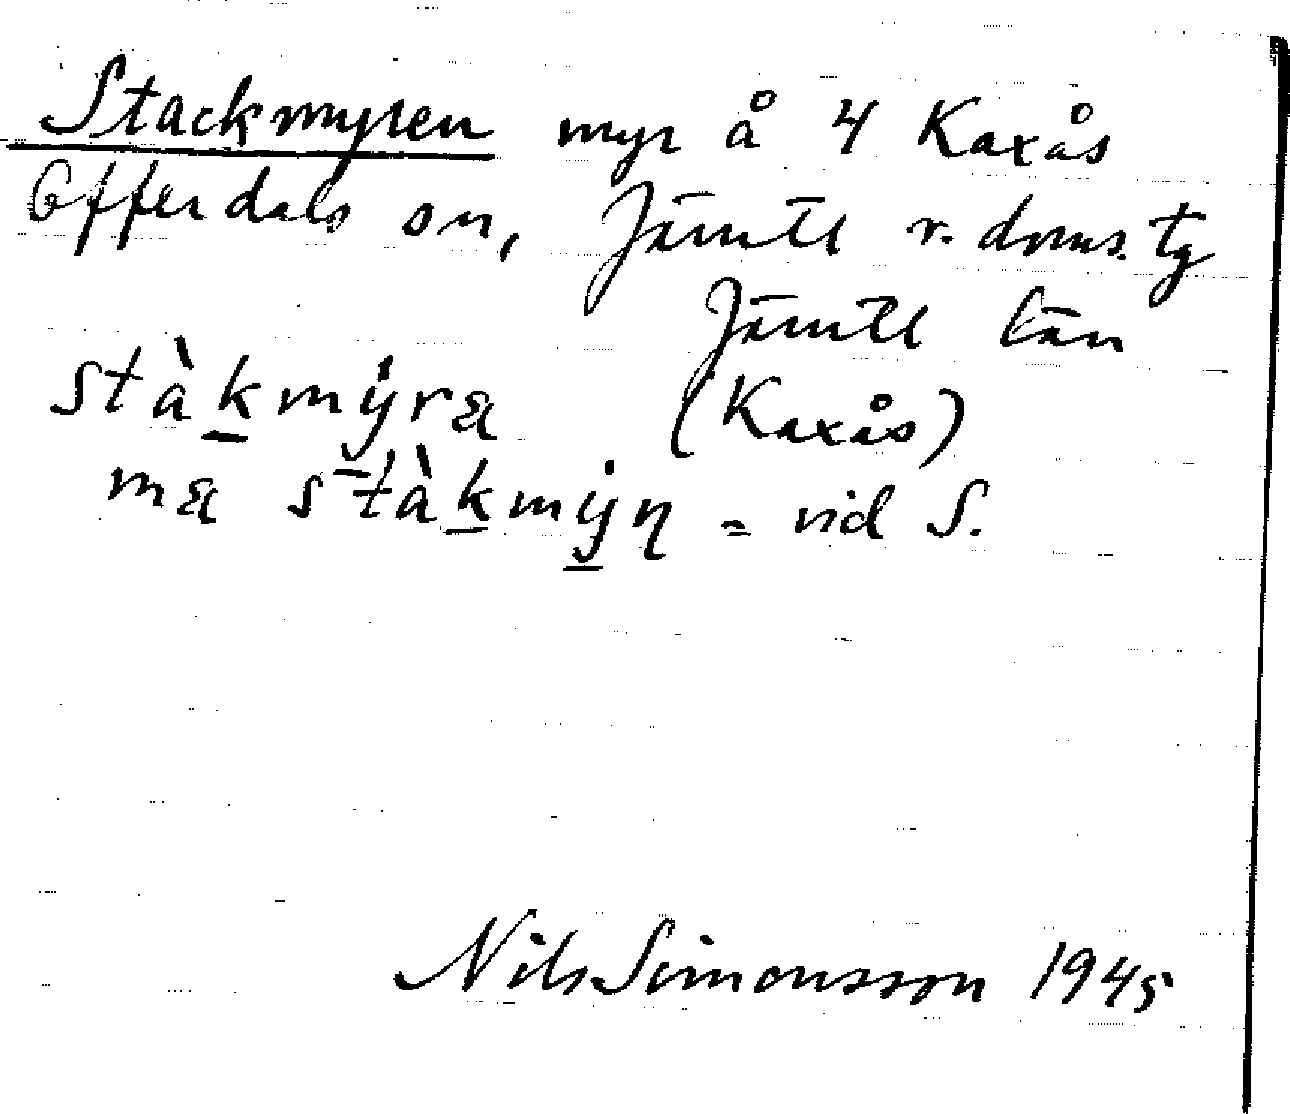 Stackmyren myr å 4 Kaxås
Offerdals sn, Jämtl v. doms. tg
Jämtl län
stàkmỳra (Kaxås)
ma stàkmỳn = vid S.
Nils Simonsson 1945